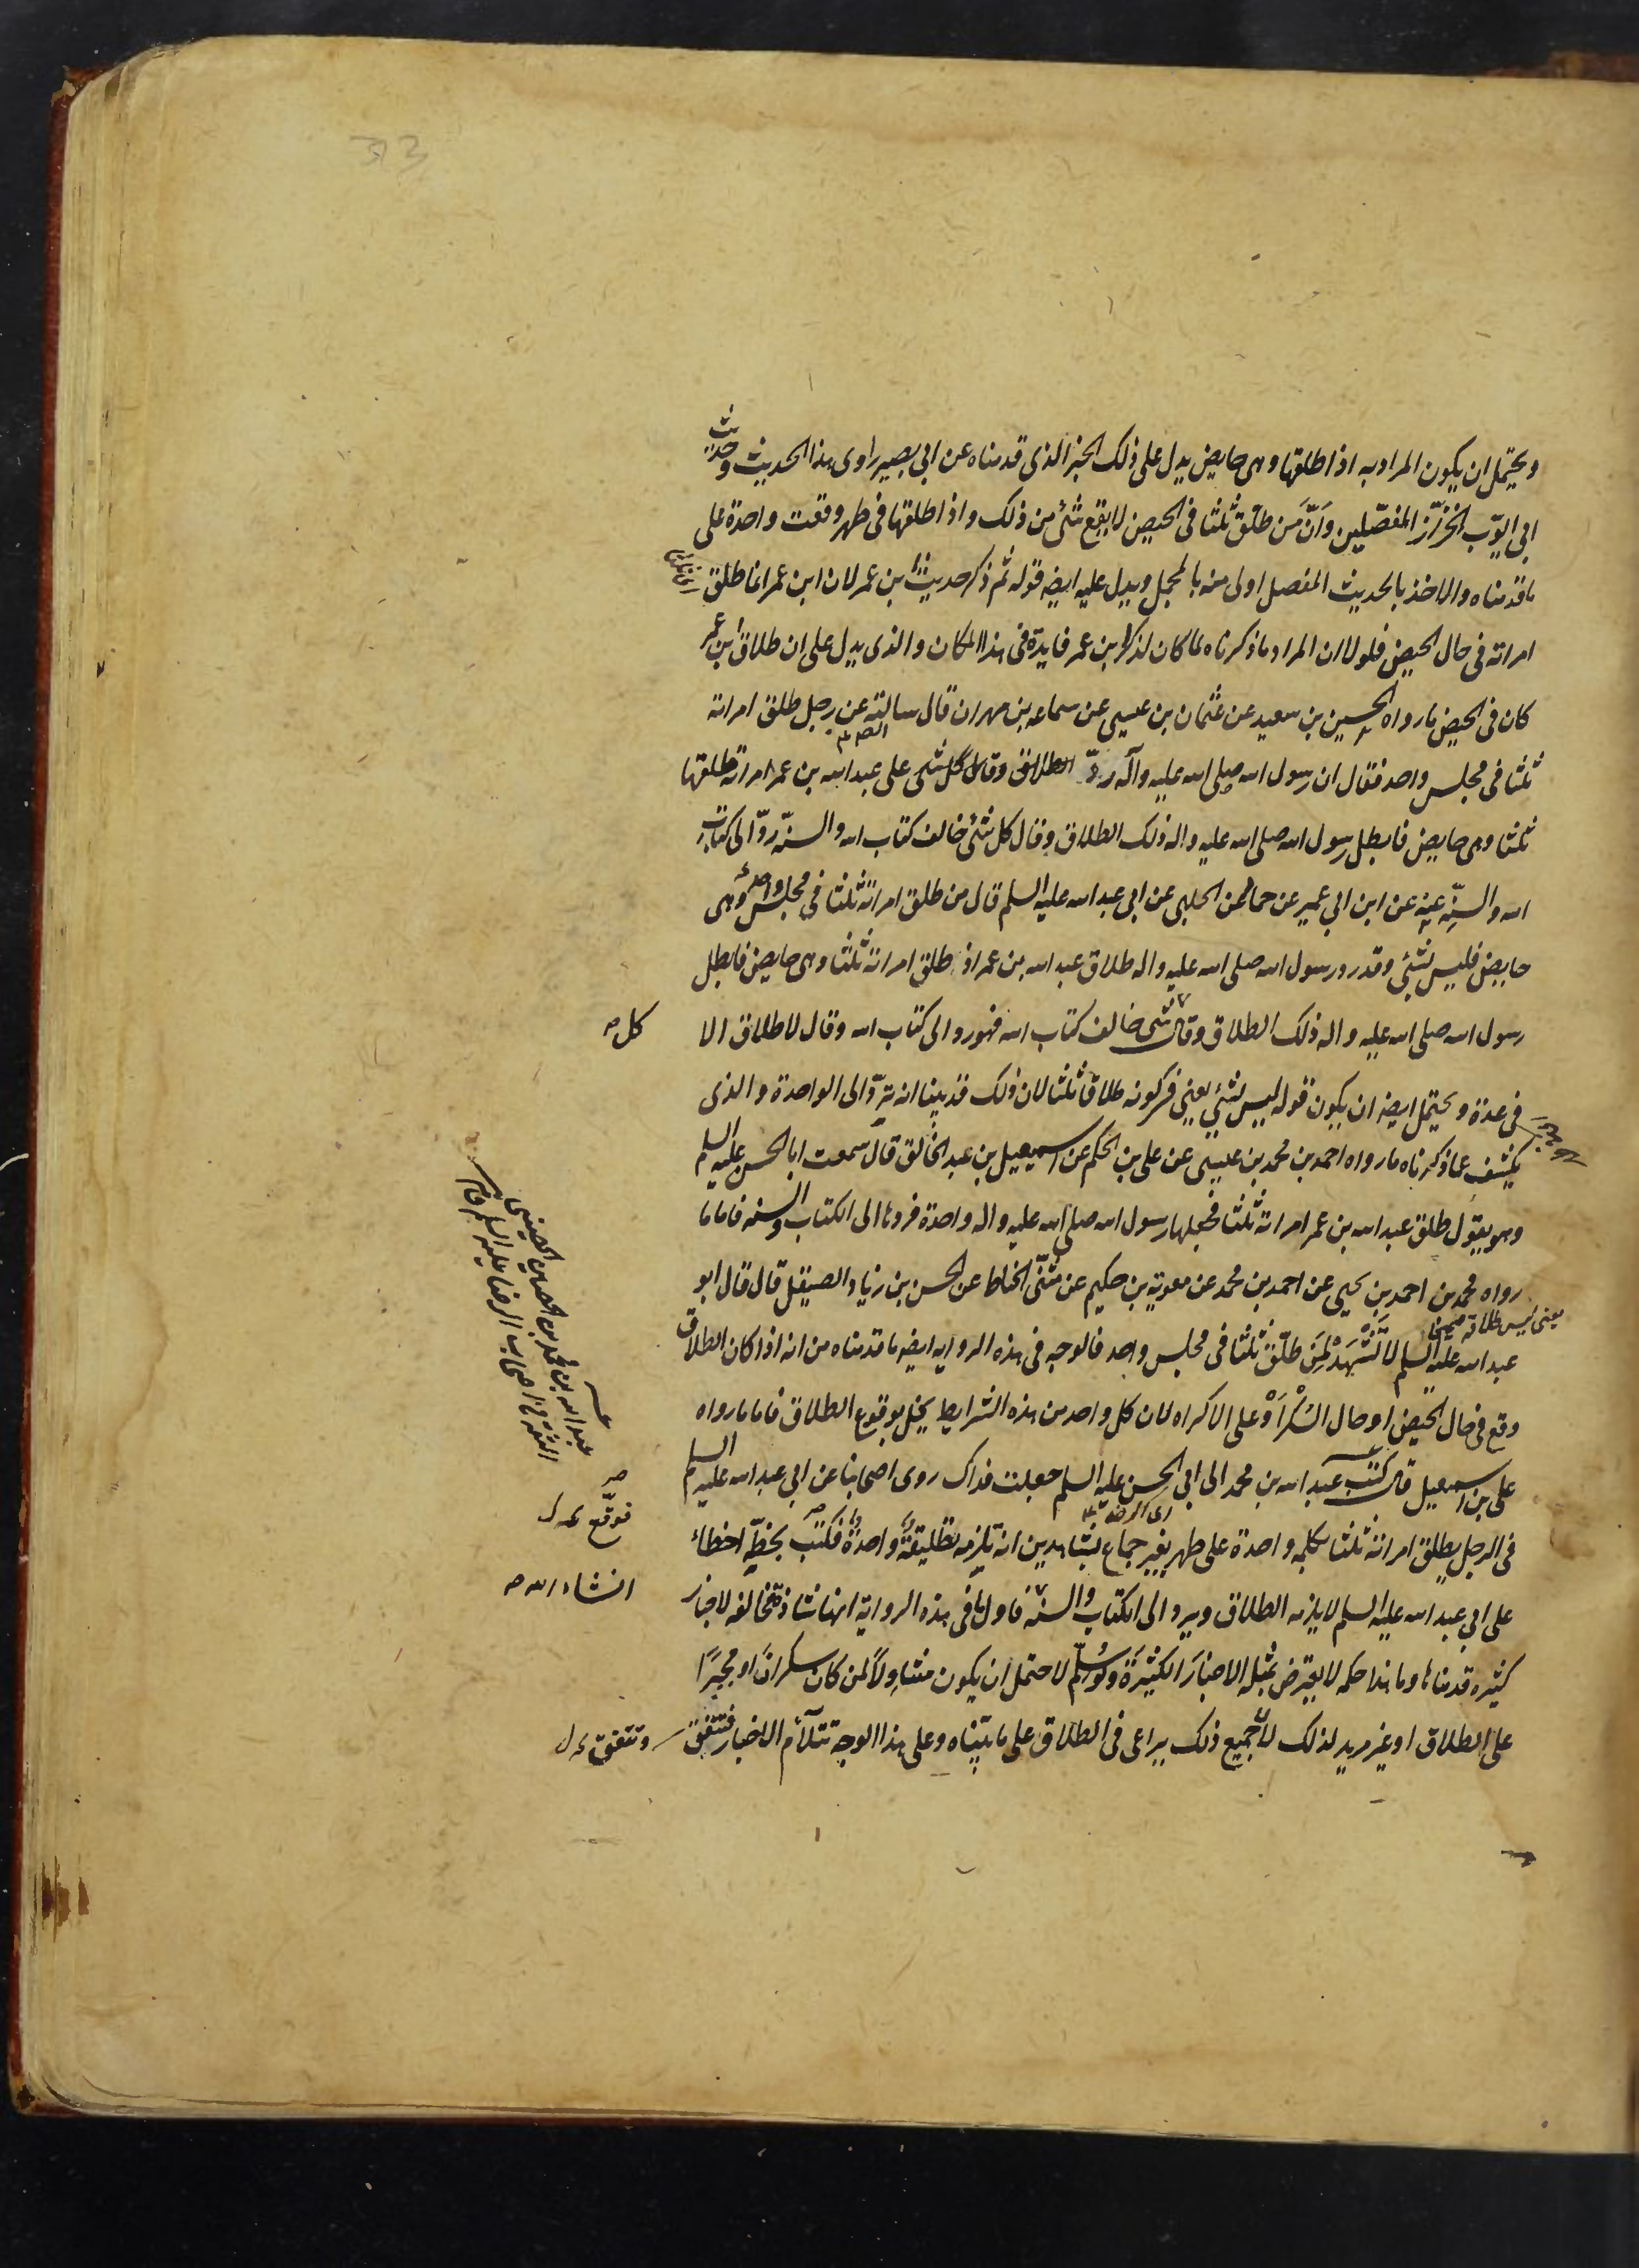 ويحتمل ان يكون المراد به اذا طلقها وهى حايض يدل على ذلك الخبر الذى قدمناه عن ابى بصير راوى هذا الحديث وحديث
ابى ايوب الخزّز المفصّلين وَانّ مَن طلّق ثلثا فى الحيض لا يقع شئ من ذلك واذا طلقها فى طهر وقعت واحدة على
ما قدمناه والاخذ بالحديث المفصل اولى منه بالمجمل ويدل عليه ايضه قوله ثم ذكر حديث ابن عمر لان ابن عمر انما طلق
امراته فى حال الحيض فلولا ان المراد ما ذكرناه لما كان لذكر ابن عمر فايدة فى هذا المكان والذى يدل على ان طلاق ابن عمر
كان فى الحيض ما رواه الحسين بن سعيد عن عثمان بن عيسى عن سماعه بن مهران قال سالته عن رجل طلق امراته
ثلثا فى مجلس واحد فقال ان رسول الله صلى الله عليه وآله ردّ الطلاق وقال كل شى على عبد الله بن عمر امراته طلقها
ثلثا وهى حايض فابطل رسول الله صلى الله عليه واله ذلك الطلاق وقال كل شئ خالف كتاب الله والسنّه ردّ الى كتاب
الله والسنّه عنه عن ابن ابى عمير عن حماد عن الحلبى عن ابى عبد الله عليه السلم قال من طلق امراته ثلثا فى مجلس واحد وهى
حايض فليس بشئ وقد رد رسول الله صلى الله عليه واله طلاق عبد الله بن عمر اذ طلق امراته ثلثا وهى حايض فابطل
رسول الله صلى الله عليه واله ذلك الطلاق وقال شى خالف كتاب الله فهو رد الى كتاب الله وقال لا طلاق الا
كل صه
فى عدة ويحتمل ايضه ان يكون قوله ليس بشئ يعنى فى كونه طلاقا ثلثا لان ذلك قد بينا انه تردّ الى الواحدة والذى
يكشف عما ذكرناه ما رواه احمد بن محمد بن عيسى عن على بن الحكم عن اسمعيل بن عبد الخالق قال سمعت ابا الحسن عليه السلم
وهو يقول طلق عبد الله بن عمر امراته ثلثا فجعلها رسول الله صلى الله عليه واله واحدة فردها الى الكتاب والسنه فاما ما
رواه محمد بن احمد بن يحيى عن احمد بن محمد عن معوية بن حكيم عن مثنّى الحناط عن الحسن بن زياد الصيقل قال قال ابو
يعنى ليس طلاقه صحيحا
عبد الله عليه السلم لا تَشْهَدْ لِمَن طلّق ثلثا فى مجلس واحد فالوجه فى هذه الروايه ايضه ما قدمناه من انه اذا كان الطلاق
وقع فى حال الحيض او حال السُكْرِ اَوْ على الاكراه لان كل واحد من هذه الشرايط يخل بوقوع الطلاق فاما ما رواه
على بن اسمعيل قال كتب عبد الله بن محمد الى ابى الحسن عليه السلم جعلت فداك روى اصحابنا عن ابى عبد الله عليه السلم
فى الرجل يطلق امراته ثلثا بكلمه واحدة على طهر بغير جماع بشاهدين انه تلزمه تطليقةٌ واحدةٌ فكتب بخطّه اخطاء
فوقّع
على ابى عبد الله عليه السلم لا يلزمه الطلاق ويرد الى الكتاب والسنّه فاول ما فى هذه الرواية انها شاذة مخالفه لاخبار
انشاء الله صه
كثيره قدمناها وما هذا حكمه لا يعترض بمثله الاخبارَ الكثيرَة ولو سُلّم لاحتمل ان يكون متناوِلاً لمن كان سكرانَ او مجبرًا
على الطلاق او غير مريد لذلك لان جميع ذلك يراعى فى الطلاق على ما بيّناه وعلى هذا الوجه تتلآئم الاخبار فتتفق
وتتفق
عبد الله بن محمد بن الحصين الحصينى
الثقة من اصحاب الرضا عليه السلم